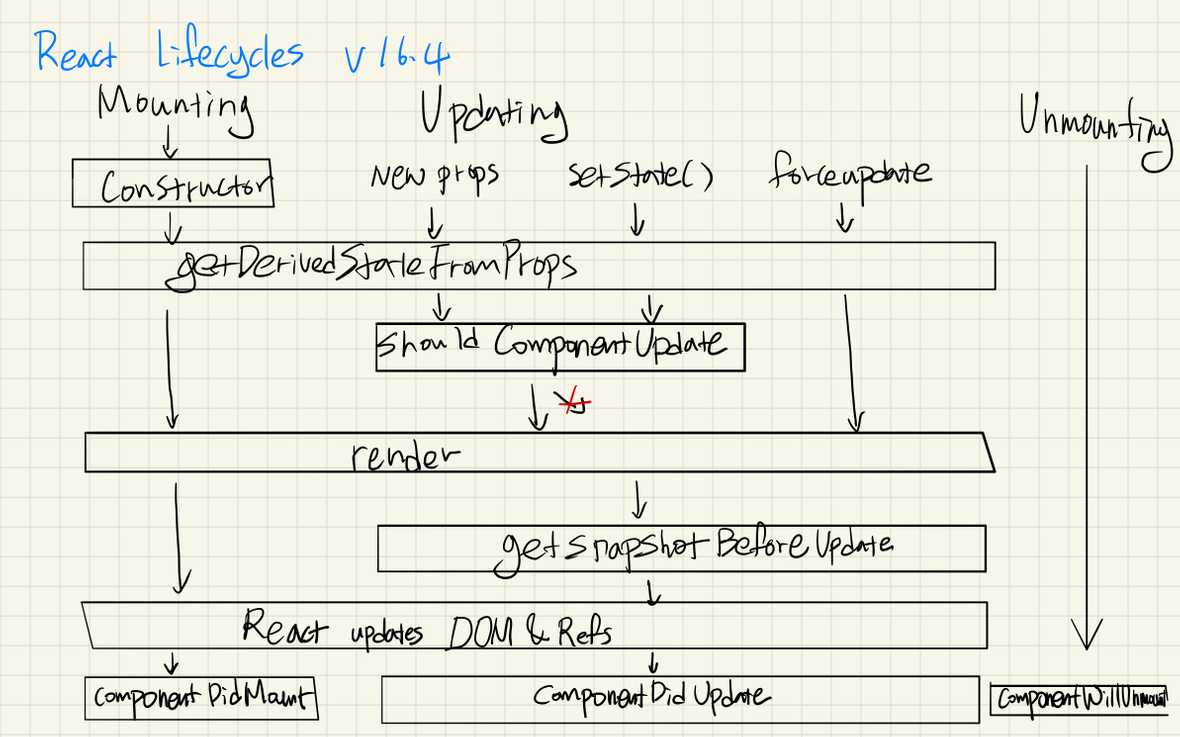 React Lifecycles v16.4
Mounting
Updating
Unmounting
Constructor
New props
setState()
forceupdate
getDerivedStateFromProps
should ComponentUpdate
render
getsnapshotBeforeUpdate
React updates DOM & Refs
ComponentDidMount
ComponentDidUpdate
ComponentWillUnmount